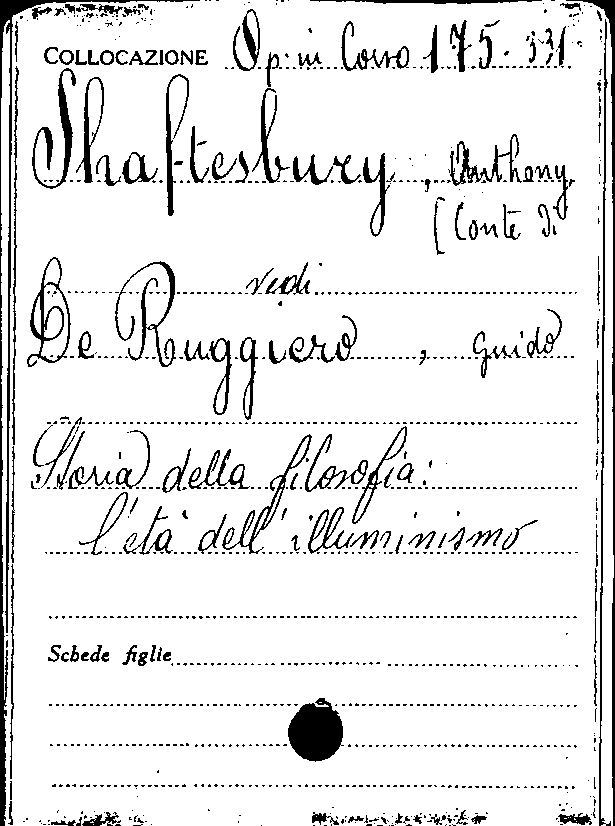 COLLOCAZIONE Op. in Corso 175. 331.
Shaftesbury, Anthony
[Conte di
vedi
De Ruggiero, Guido
Storia della filosofia:
l'età dell'illuminismo
Schede figlie